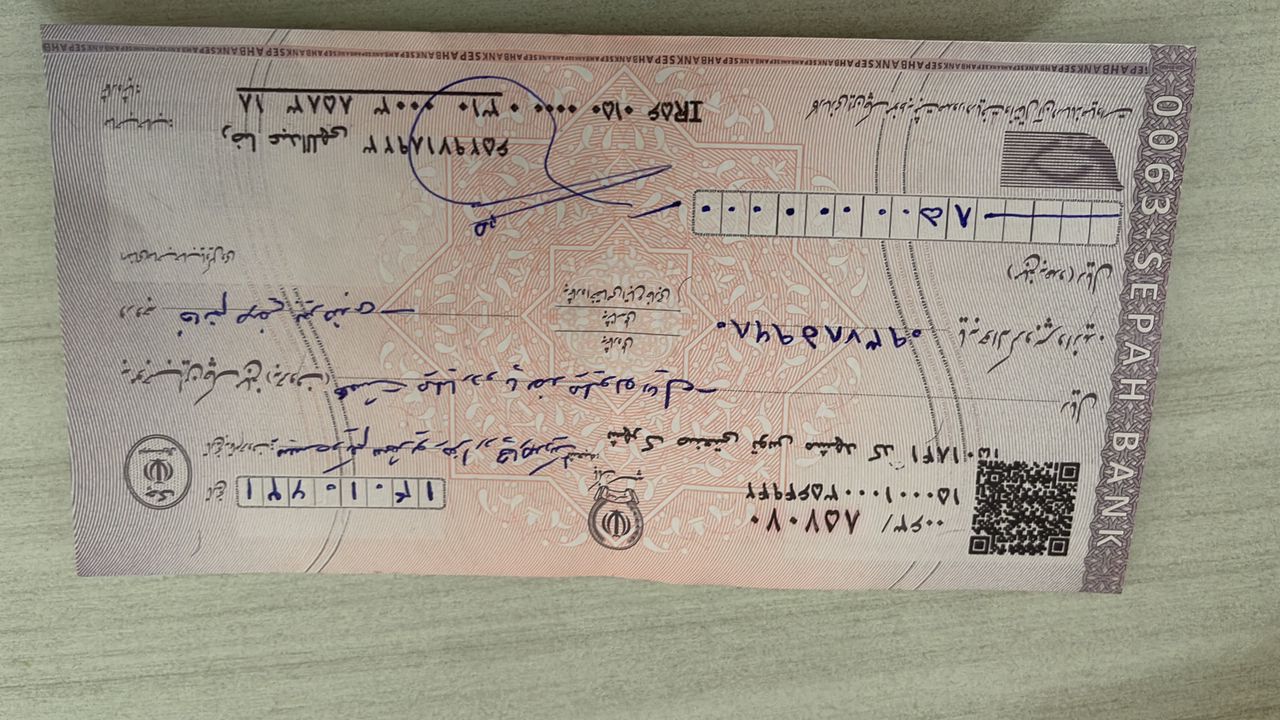 ۰۰۶۳/ ۸۵۷۰۷۰
۱۵۰۰۰۱۰۰۰۳۵۶۴۹۴۲
بانک سپه
تاریخ ۱۴۰۱۰۶۲۱
چک
تاریخ به تمام حروف: بیست و یکم شهریور هزار و چهارصد و یک
شعبه: شهرک صنعتی توس مشهد کد ۱۵۰۱۸۴۱
به موجب این چک مبلغ (به حروف) هشت میلیارد و پانصد میلیون ریال ریال
در وجه خانم
به شماره ملی
به شناسه ملی
به شماره اختصاصی اتباع خارجی
۰۹۳۷۸۵۹۶۸۰ یا به حواله کرد بپردازید.
(مبلغ به عدد) ریال
۸۵۰۰۰۰۰۰۰۰
امضای صاحب حساب یا وکیل وی
صاحب حساب: رضا عبداللهی ۶۵۲۹۷۱۸۹۲۳
شماره شبا: IR۵۶ ۰۱۵۰ ۰۰۰۰ ۰۳۱۰ ۰۰۰۳ ۸۵۸۳ ۱۸
کارسازی این چک منوط به ثبت صدور، دریافت و انتقال آن در سامانه صیاد است
0063-SEPAH BANK
SEPAHBANKSEPAHBANKSEPAHBANKSEPAHBANKSEPAHBANK